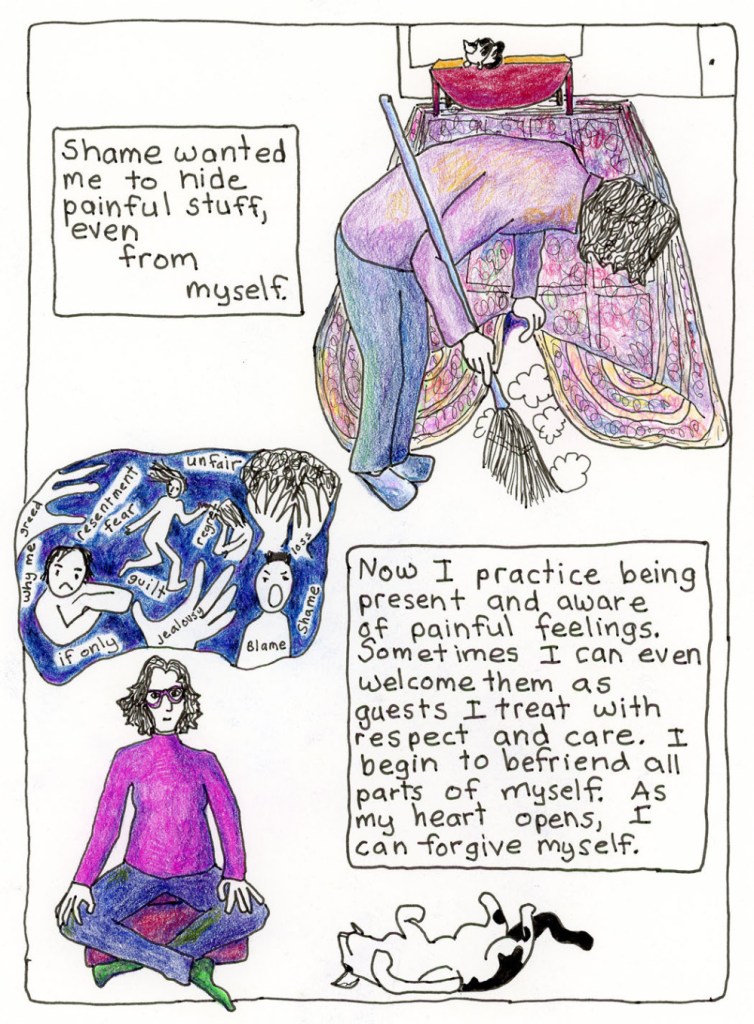 Shame wanted
me to hide
painful stuff,
even
from
myself.
unfair
resentment
fear
greed
regret
loss
why me
guilt
jealousy
shame
if only
Blame
Now I practice being
present and aware
of painful feelings.
Sometimes I can even
welcome them as
guests I treat with
respect and care. I
begin to befriend all
parts of myself. As
my heart opens, I
can forgive myself.